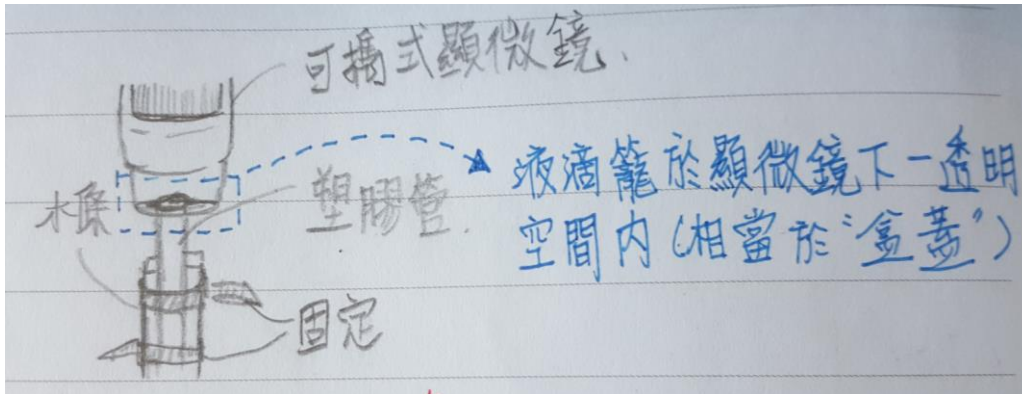 可攜式顯微鏡.
木條
塑膠管.
固定
液滴籠於顯微鏡下一透明
空間內(相當於"盒蓋")